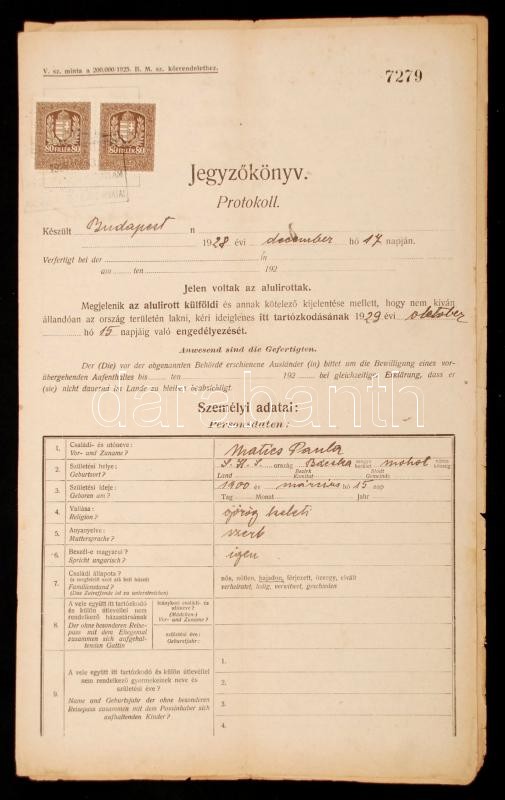 V. sz. minta a 200.000/1925. B. M. sz. körrendelethez.
7279
80 FILLÉR 80
80 FILLÉR 80
Jegyzőkönyv.
Protokoll.
Készült Budapest n
1928 évi december hó 17 napján.
Verfertigt bei der in
am ten 192
Jelen voltak az alulírottak.
Megjelenik az alulirott külföldi és annak kötelező kijelentése mellett, hogy nem kíván
állandóan az ország területén lakni, kéri ideiglenes itt tartózkodásának 1929 évi október
hó 15 napjáig való engedélyezését.
Anwesend sind die Gefertigten.
Der (Die) vor der obgenannten Behörde erschienene Ausländer (in) bittet um die Bewilligung eines vor-
übergehenden Aufenthaltes bis ten 192 bei gleichzeitiger Erklärung, dass er
(sie) nicht dauernd im Lande zu bleiben beabsichtigt.
darabanth
Személyi adatai:
Personsdaten:
1. Családi- és utóneve: Vor- und Zuname? Matics Paula
2. Születési helye: Geburtsort? S. H. S. ország Bácska megye mohol község
Land Bezirk Komitat Stadt Gemeinde
3. Születési ideje: Geboren am? 1900 év március hó 15 nap
Tag Monat Jahr
4. Vallása: Religion? görög keleti
5. Anyanyelve: Muttersprache? szerb
6. Beszél-e magyarul? Spricht ungarisch? igen
7. Családi állapota?
(a megfelelő szót alá kell húzni)
Familienstand?
(Das Zutreffende ist zu unterstreichen)
nős, nőtlen, hajadon, férjezett, özvegy, elvált
verheiratet, ledig, verwitwet, geschieden
8. A vele együtt itt tartózkodó
és külön útlevéllel nem
rendelkező házastársának
Der ohne besonderen Reise-
pass mit dem Ehegemal
zusammen sich aufgehal-
tenden Gattin
leánykori családi- és
utóneve?
(Mädchen-)
Vor- und Zuname?
születési éve:
Geburtsjahr:
9. A vele együtt itt tartózkodó és külön útlevéllel
nem rendelkező gyermekeinek neve és
születési éve?
Name und Geburtsjahr der ohne besonderen
Reisepass zusammen mit dem Passinhaber sich
aufhaltenden Kinder?
1.
2.
3.
4.